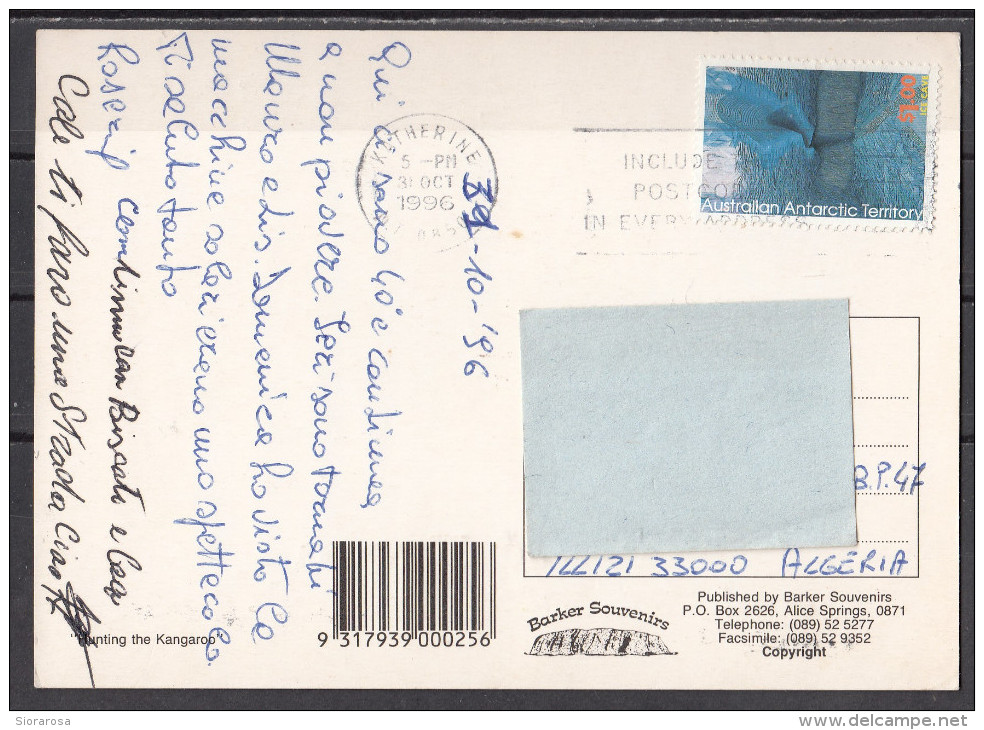 31-10-'96
Qui ci sono 40°c continua
a non piovere. Ieri sono tornati
Mauro e Lis. Domenica ho visto le
macchine solari erano uno spettacolo.
Ti saluto tanto
Roserif
e
ti farò una Strada Ciao
"Hunting the Kangaroo"
KATHERINE
5 -PM
31 OCT
1996
INCLUDE
POSTCO
IN EVERY ADDRESS
$1.00
Australian Antarctic Territory
B.P. 47
ILLIZI 33000 ALGERIA
9 317939 000256
Barker Souvenirs
Published by Barker Souvenirs
P.O. Box 2626, Alice Springs, 0871
Telephone: (089) 52 5277
Facsimile: (089) 52 9352
Copyright
Siorarosa
www.delcampe.net